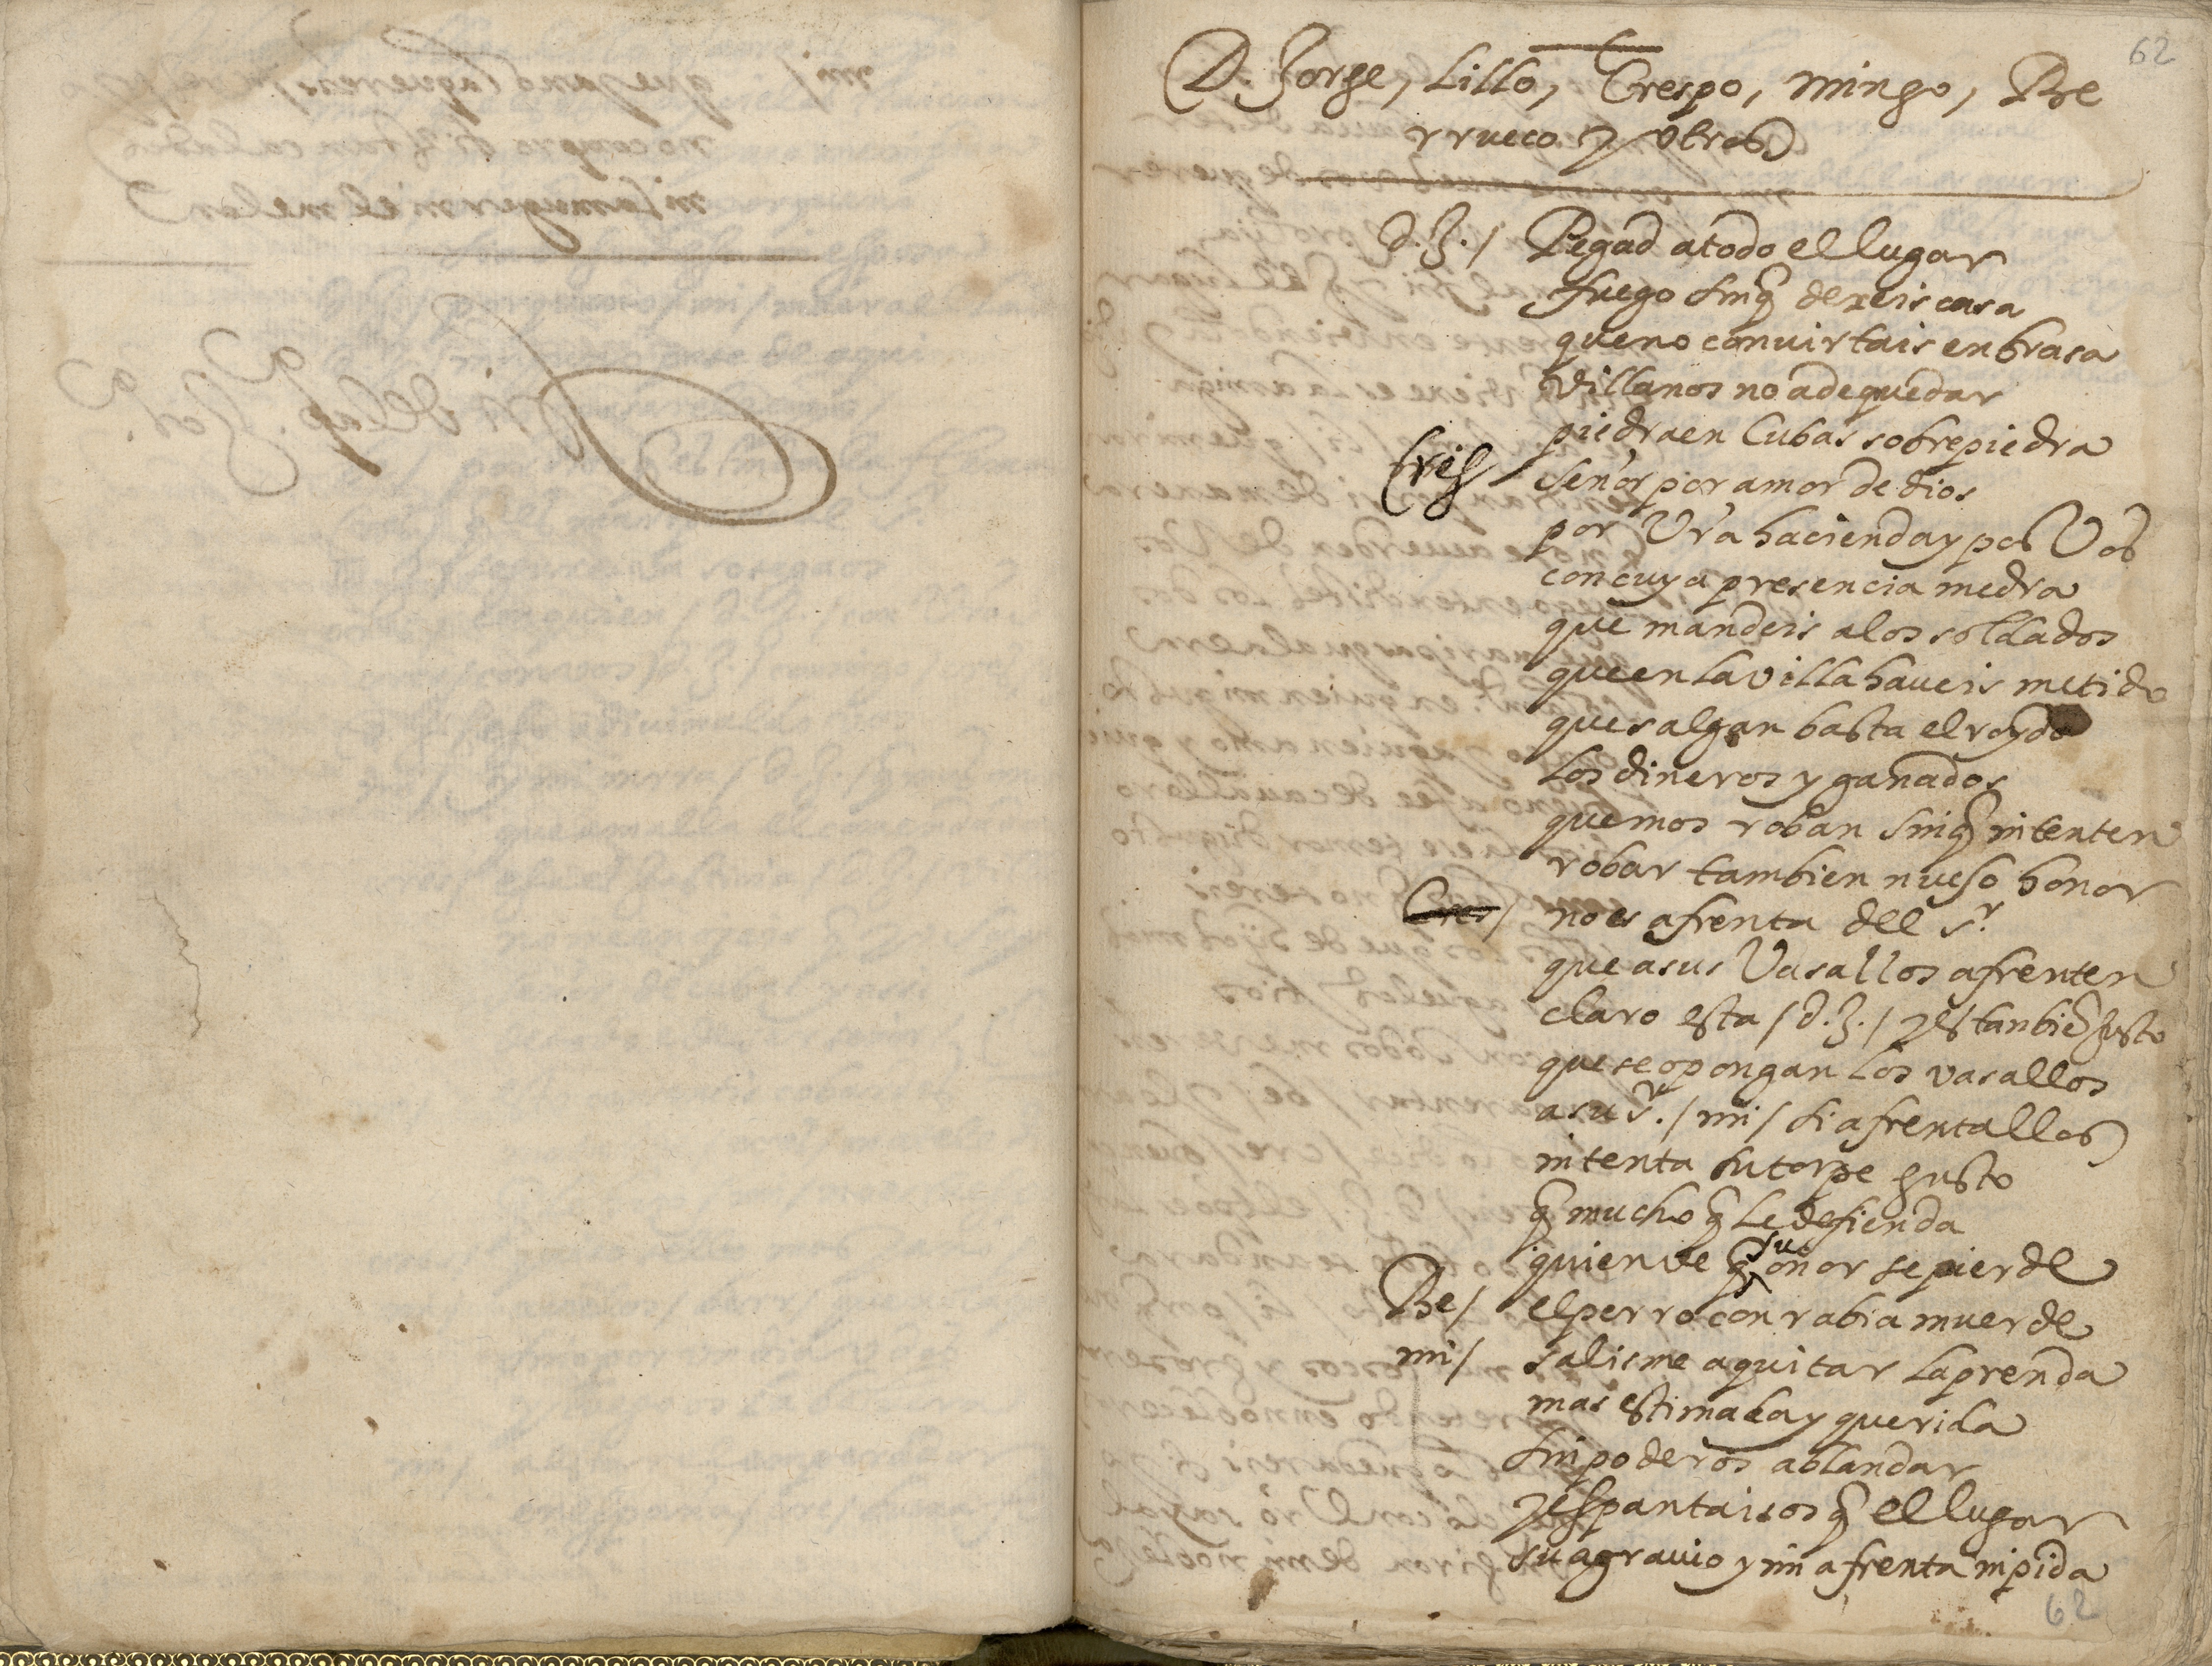 62
D. Jorge, Lillo, Crespo, mingo, Be
rrueco y otros
d. J. / Pegad a todo el lugar
fuego sin q̃ dexeis casa
que no convirtais en brasa
villanos no a de quedar
piedra en Cubas sobre piedra
Cres / señor por amor de dios
por Vra hacienda y por Vos
con cuya presencia medra
que mandeis a los soldados
que en la villa haveis metido
que salgan basta el roydo
los dineros y ganados
que mos roban sin q̃ intenten
robar tambien nueso honor
Cres / no es afrenta del sr.
que a sus Vasallos afrenten
claro esta / d. J. / y es tanbiẽ justo
que se opongan los vasallos
a su sr. / mi / si afrentallos
intenta su torpe gusto
q̃ mucho q̃ le defienda
quien ve q̃ su onor se pierde
Be / el perro con rabia muerde
mi / salisme a quitar la prenda
mas estimada y querida
sin poderos ablandar
y espantaisos q̃ el lugar
su agravio y mi afrenta inpida
62